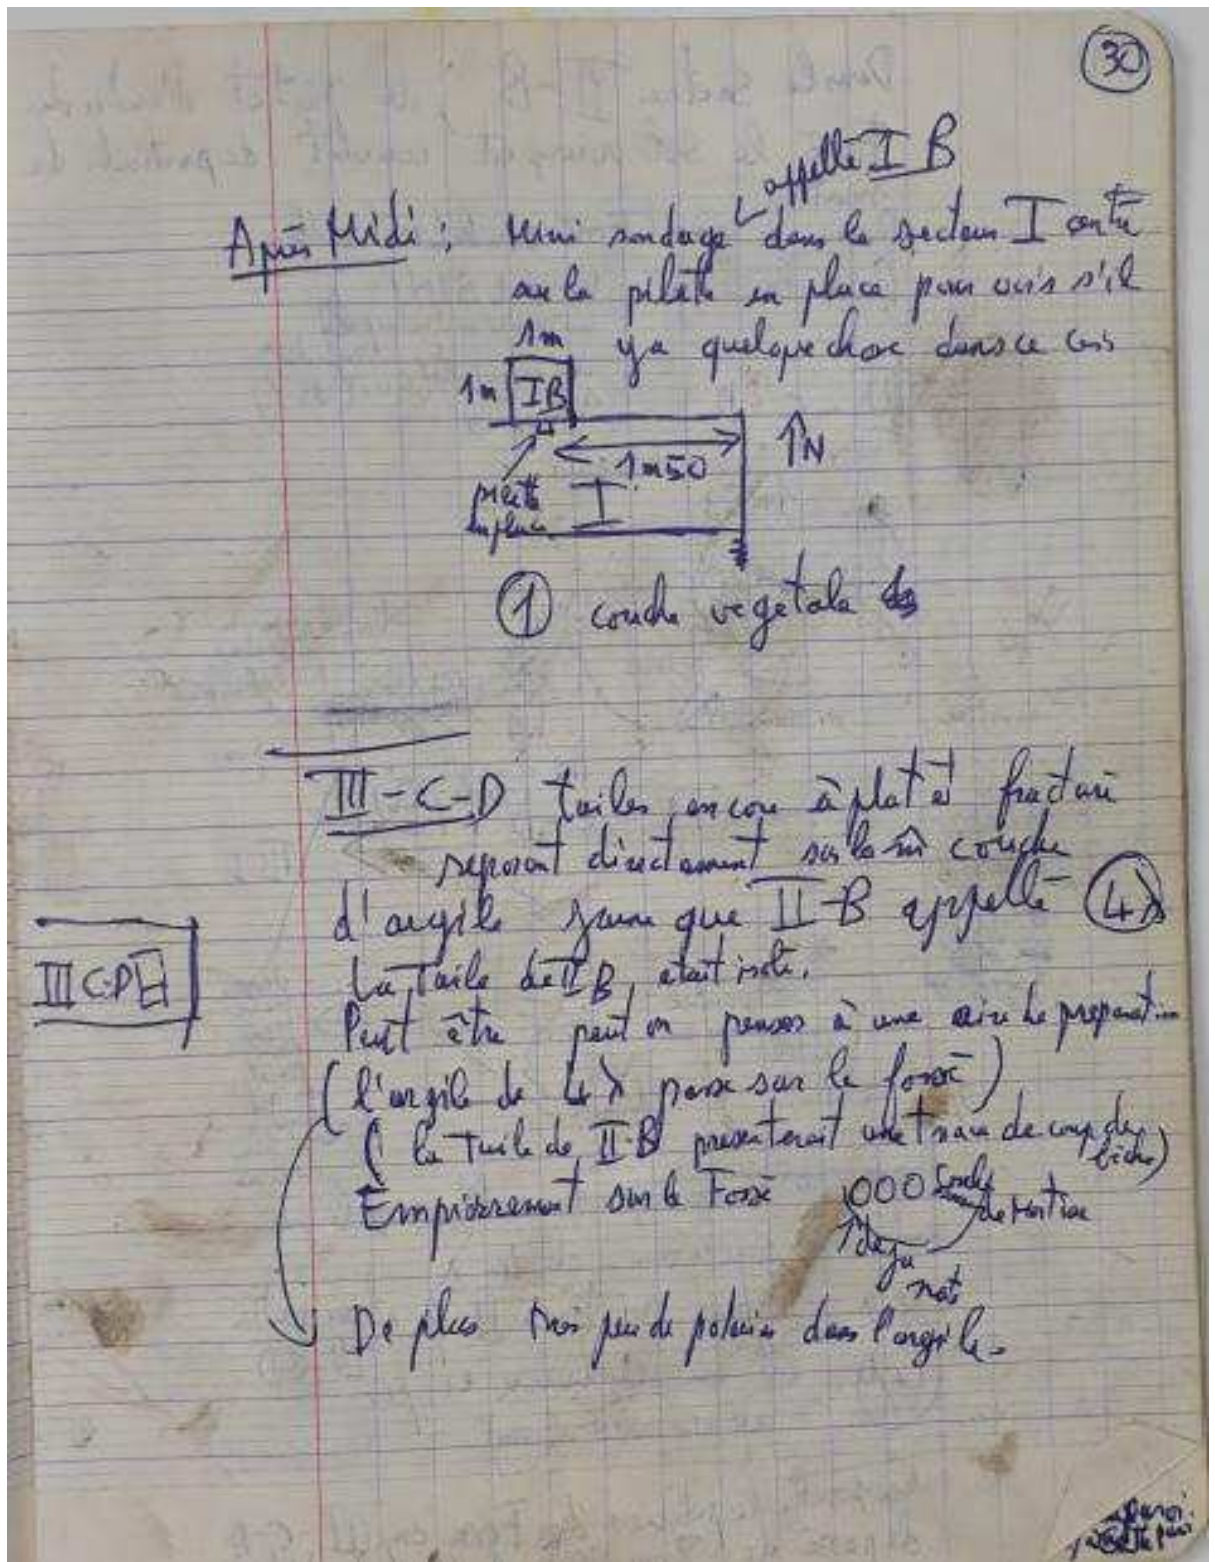 30
appellé I B
Après Midi : Mini sondage dans le secteur I
la pilette en place pour voir s'il
1m y a quelque chose dans ce
1m IB
↑N
1m50
pilette en place
I
1 couche vegetale
III-C-D tuiles encore à plat et fracturé
reposant directement sur la m̂ couche
d'argile jaune que II-B appellé 4λ
La Tuile de II B, etait isolé.
III C-D
Peut être peut on penser à une aire de preparat...
(l'argile de 4λ passe sur le fossé)
(la Tuile de II-B presenterait une Trace de coup de bêche)
Empierrement sur le Fossé 000 de Mortier
↑ deja
noté
De plus très peu de poterie dans l'argile.